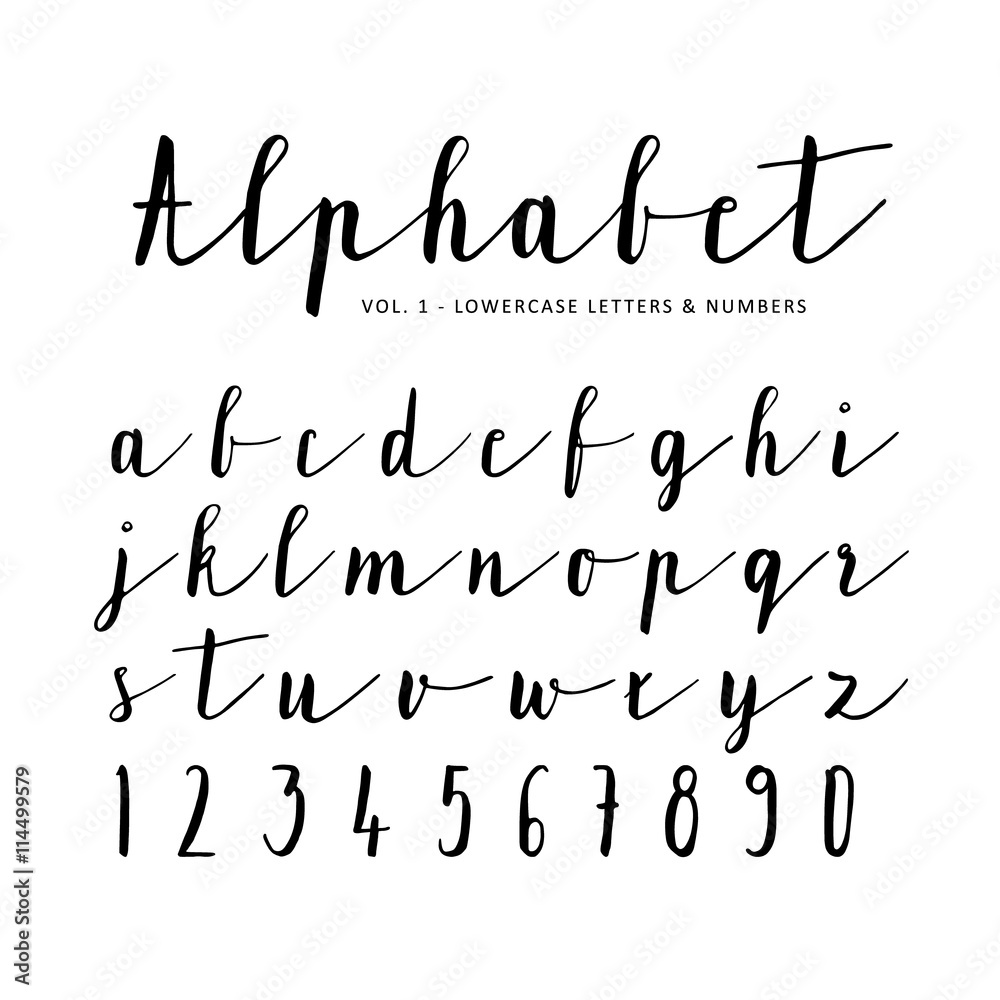 Alphabet
VOL. 1 - LOWERCASE LETTERS & NUMBERS
a b c d e f g h i
j k l m n o p q r
s t u v w x y z
1 2 3 4 5 6 7 8 9 0
Adobe Stock | #114499579